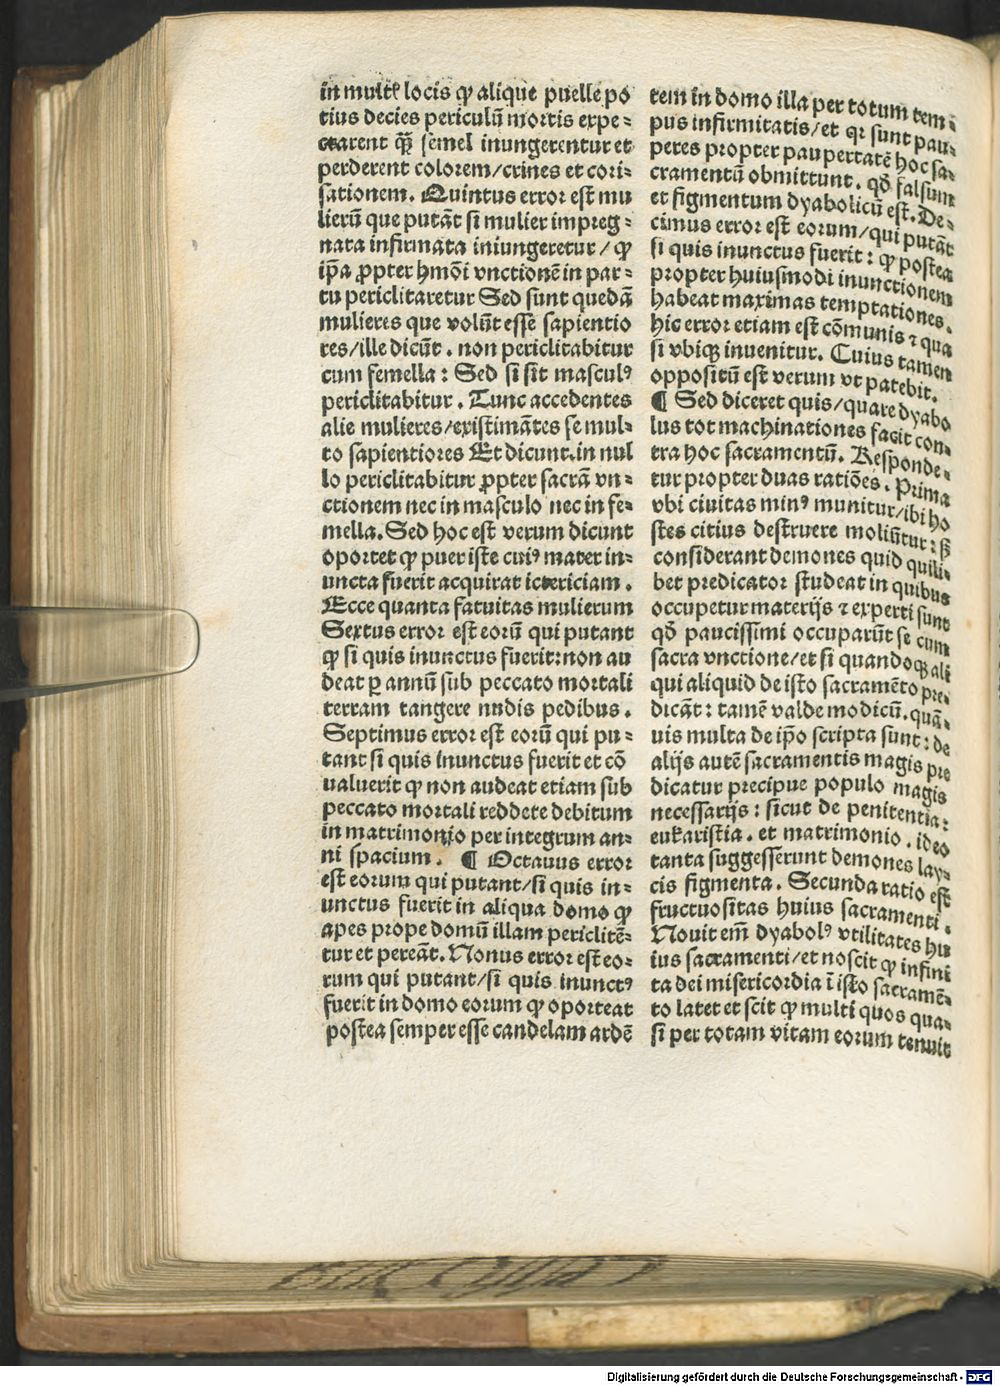 in multꝭ locis ꝙ alique puelle po
tius decies periculū mortis expe⸗
ctarent qᷓꝫ semel inungerentur et
perderent colorem/crines et cori⸗
sationem. Quintus error est mu
lierū que putāt si mulier impreg⸗
nata infirmata iniungeretur/ ꝙ
ip̄a ꝓpter hmōi vnctionē in par⸗
tu periclitaretur Sed sunt quedā
mulieres que volūt esse sapientio
res/ille dicūt. non periclitabitur
cum femella: Sed si sit masculꝰ
periclitabitur. Tunc accedentes
alie mulieres/existimātes se mul⸗
to sapientiores Et dicunt.in nul
lo periclitabitur ꝓpter sacrā vn⸗
ctionem nec in masculo nec in fe⸗
mella. Sed hoc est verum dicunt
oportet ꝙ puer iste cuiꝰ mater in⸗
uncta fuerit acquirat ictericiam.
Ecce quanta fatuitas mulierum
Sextus error est eorū qui putant
ꝙ si quis inunctus fuerit:non au
deat ꝑ annū sub peccato mortali
terram tangere nudis pedibus.
Septimus error est eorū qui pu⸗
tant si quis inunctus fuerit et cō
ualuerit ꝙ non audeat etiam sub
peccato mortali reddete debitum
in matrimonio per integrum an⸗
ni spacium. ¶ Octauus error
est eorum qui putant/si quis in⸗
unctus fuerit in aliqua domo ꝙ
apes prope domū illam periclitē⸗
tur et pereāt. Nonus error est eo⸗
rum qui putant/si quis inunctꝰ
fuerit in domo eorum ꝙ oporteat
postea semper esse candelam ardē
tem in domo illa per totum tem⸗
pus infirmitatis/et qꝛ sunt pau⸗
peres propter paupertatē hoc sa⸗
cramentū obmittunt. qđ falsum
et figmentum dyabolicū est. De⸗
cimus error est eorum/qui putāt
si quis inunctus fuerit: ꝙ postea
propter huiusmodi inunctionem
habeat maximas temptationes.
hic error etiam est cōmunis ⁊ qua
si vbiqꝫ inuenitur. Cuius tamen
oppositū est verum vt patebit.
¶ Sed diceret quis/quare dyabo
lus tot machinationes facit con⸗
tra hoc sacramentū. Responde⸗
tur propter duas ratiōes. Prima
vbi ciuitas minꝰ munitur/ibi ho
stes citius destruere moliūtur: ẞ
considerant demones quid quili⸗
bet predicator studeat in quibus
occupetur materijs ⁊ experti sunt
qđ paucissimi occuparūt se cum
sacra vnctione/et si quandoqꝫ ali
qui aliquid de isto sacramēto pre⸗
dicāt: tamē valde modicū. quā⸗
uis multa de ip̄o scripta sunt: de
alijs autē sacramentis magis pre
dicatur precipue populo magis
necessarijs: sicut de penitentia:
eukaristia. et matrimonio. ideo
tanta suggesserunt demones lay⸗
cis figmenta. Secunda ratio est
fructuositas huius sacramenti.
Nouit em̄ dyabolꝰ vtilitates hu
ius sacramenti/et noscit ꝙ infini
ta dei misericordia ī isto sacramē⸗
to latet et scit ꝙ multi quos qua⸗
si per totam vitam eorum tenuit
Digitalisierung gefördert durch die Deutsche Forschungsgemeinschaft - DFG